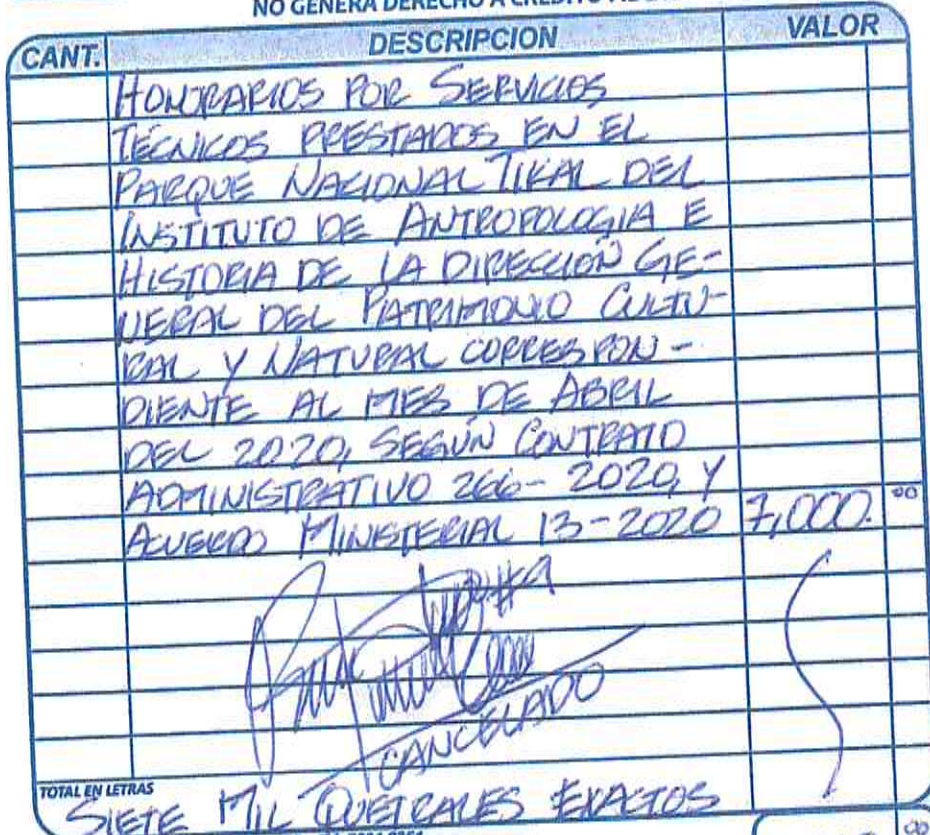 NO GENERA DERECHO A CREDITO
CANT. DESCRIPCION VALOR
HONORARIOS POR SERVICIOS
TÉCNICOS PRESTADOS EN EL
PARQUE NACIONAL TIKAL DEL
INSTITUTO DE ANTROPOLOGIA E
HISTORIA DE LA DIRECCIÓN GE-
NERAL DEL PATRIMONIO CULTU-
RAL Y NATURAL CORRESPON-
DIENTE AL MES DE ABRIL
DEL 2020, SEGÚN CONTRATO
ADMINISTRATIVO 266-2020, Y
ACUERDO MINISTERIAL 13-2020 7,000.00
CANCELADO
TOTAL EN LETRAS
SIETE MIL QUETZALES EXACTOS